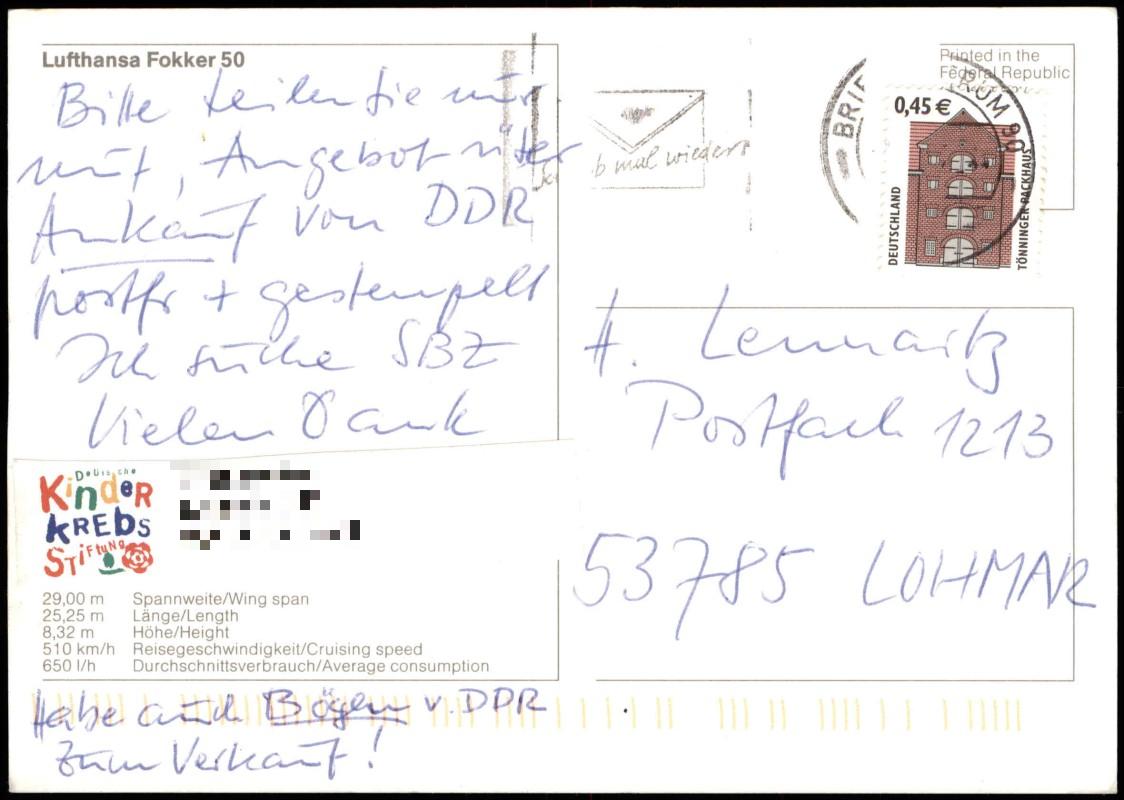 Lufthansa Fokker 50
Bitte teilen Sie mir
mit, Angebot über
Ankauf von DDR
postfr + gestempelt
Ich suche SBZ
Vielen Dank
Deutsche
KiNdeR
KREBS
STiFtuNG
29,00 m Spannweite/Wing span
25,25 m Länge/Length
8,32 m Höhe/Height
510 km/h Reisegeschwindigkeit/Cruising speed
650 l/h Durchschnittsverbrauch/Average consumption
Habe auch Bögen v. DDR
zum Verkauf!
b mal wieder
BRIE
UM 90
Printed in the
Federal Republic
0,45 €
DEUTSCHLAND
TÖNNINGER PACKHAUS
H. Lennartz
Postfach 1213
53785 LOHMAR